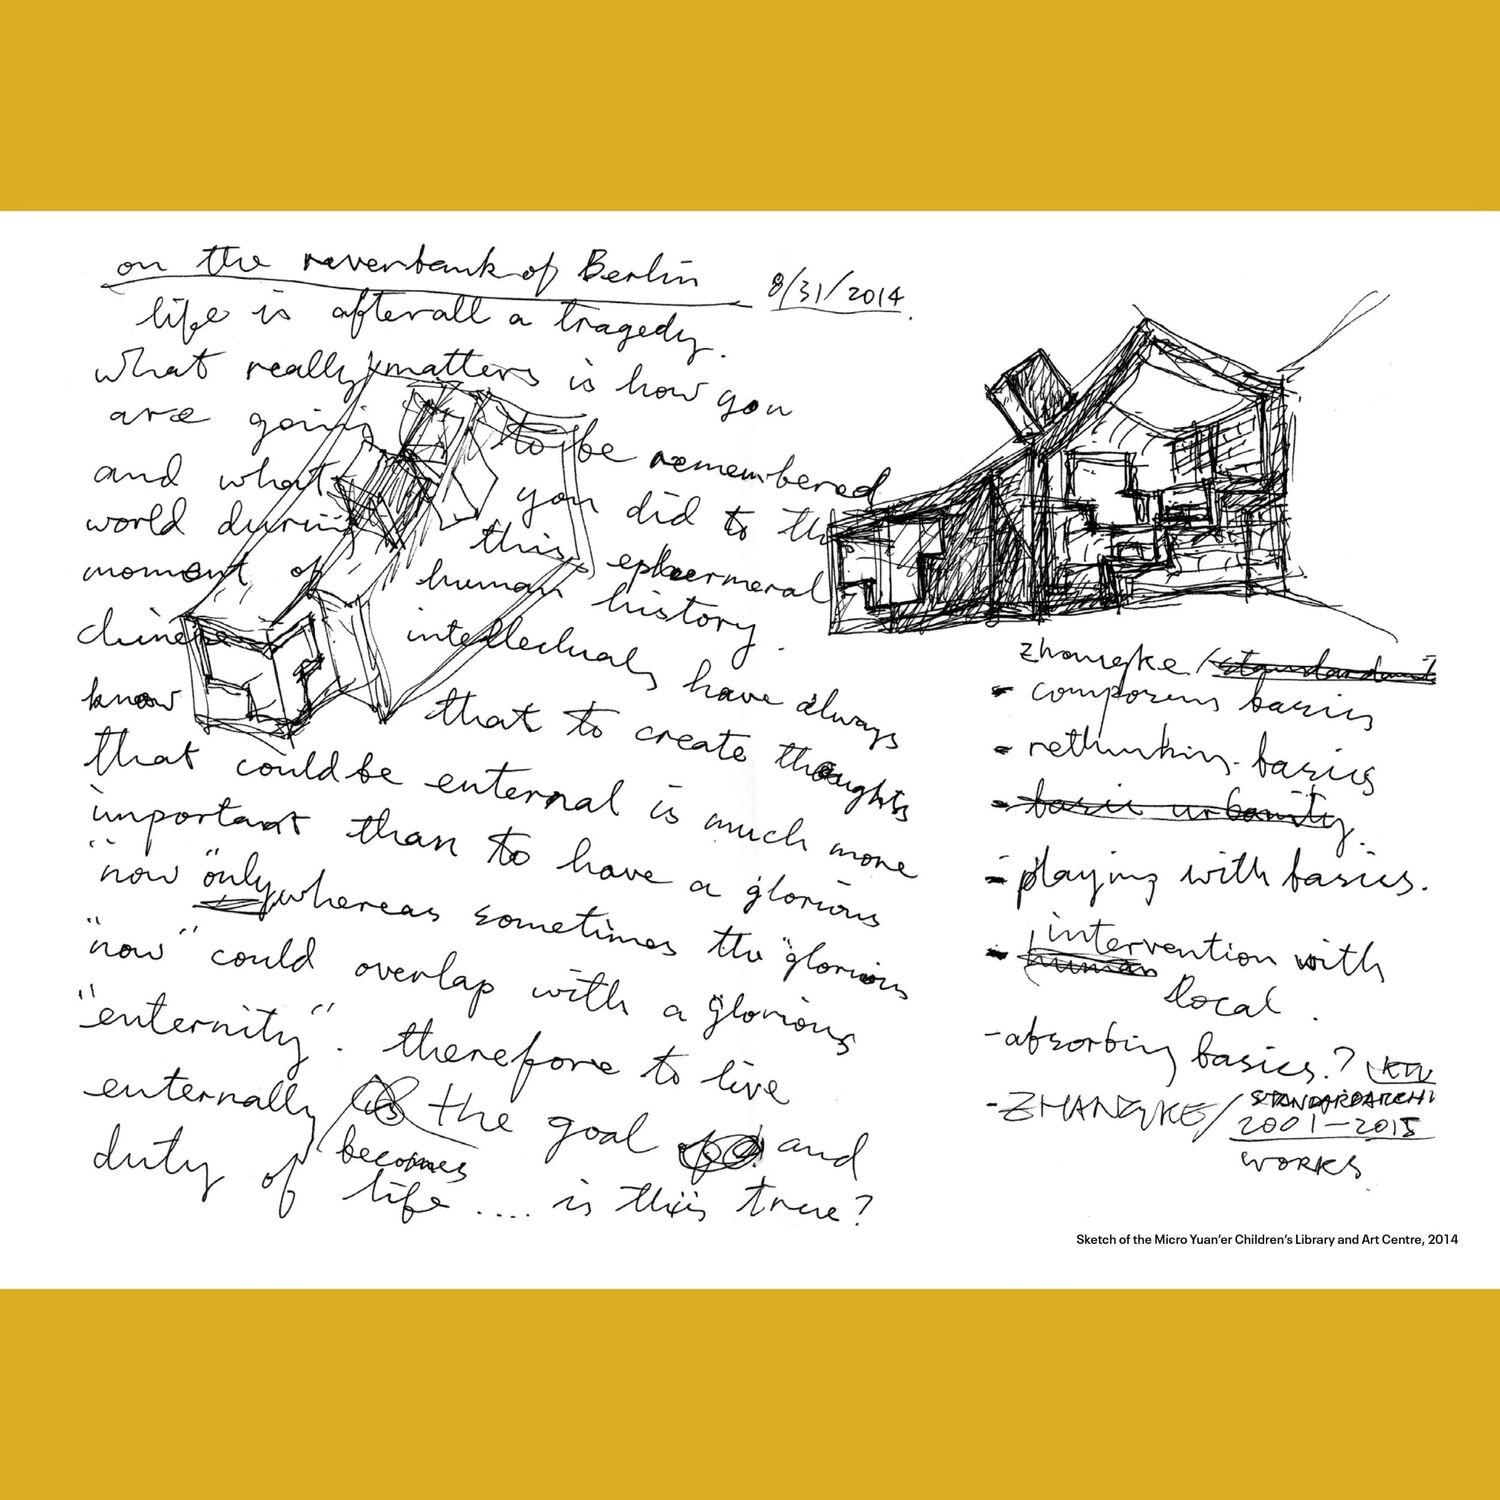 on the reverbank of Berlin 8/31/2014.
life is afterall a tragedy.
what really matters is how you
are going to be remembered
and what you did to the
world during this ephermeral
moment of human history.
chinese intellectuals have always
know that to create thoughts
that could be enternal is much more
important than to have a glorious
"now" only whereas sometimes the "glorious
"now" could overlap with a glorious
"enternity". therefore to live
enternally becomes the goal and
duty of life .... is this true?
zhangke / standard
- composing basics
- rethinking basics
- basic urbanity.
- playing with basics.
- human intervention with
local.
- absorbing basics.?
- ZHANGKE/STANDARDARCHI
2001-2015
WORKS
Sketch of the Micro Yuan'er Children's Library and Art Centre, 2014